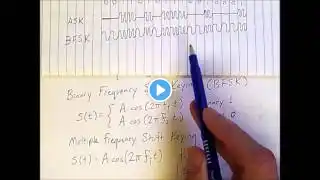 ASK
BFSK
Binary Frequency S Keying (BFSK)
S(t) = { A cos(2π f₁ t) binary 1
A cos(2π
Multiple Frequency Shift Keying
S(t) = A cos(2π fᵢ t)